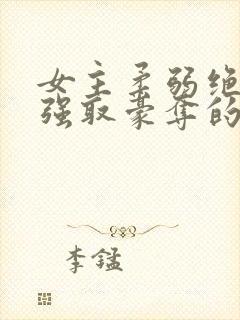 女主柔弱绝
强取豪夺的
李锰